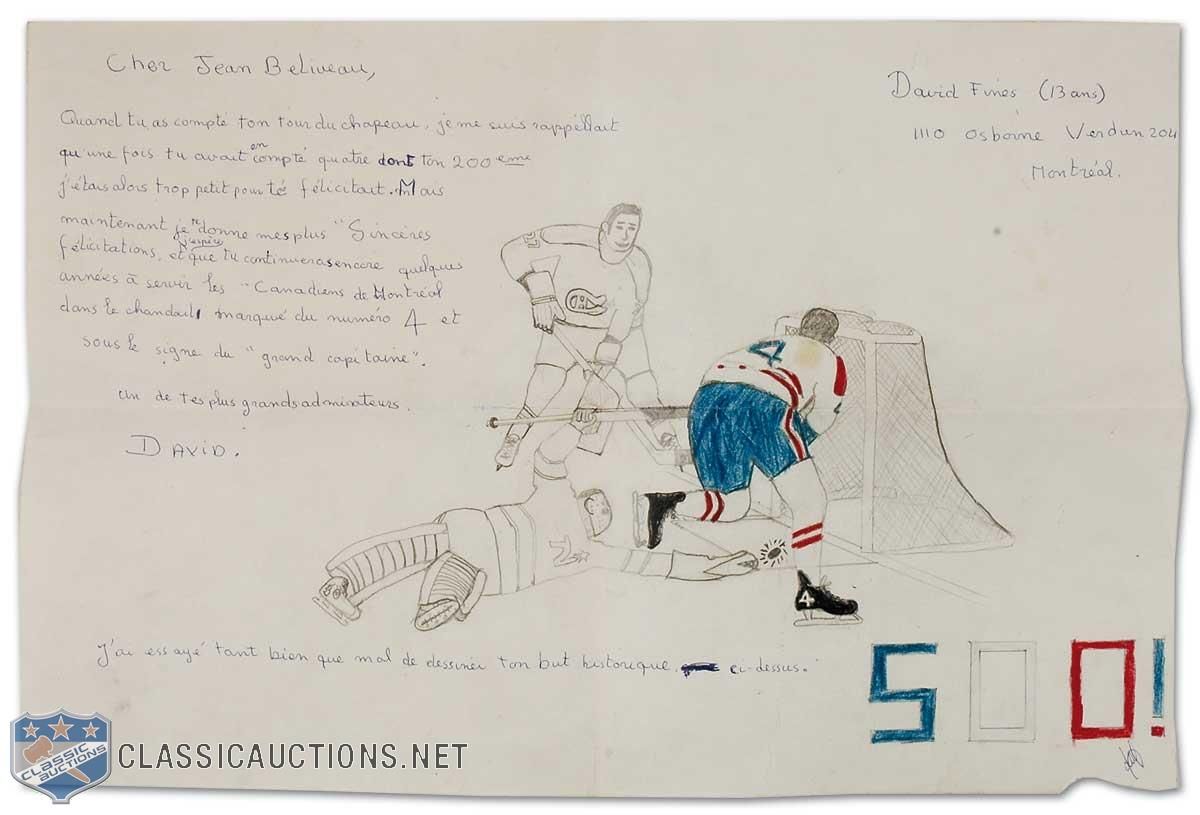 Cher Jean Beliveau,
David Finès (13 ans)
1110 Osborne Verdun 204
Montréal.
Quand tu as compté ton tour du chapeau, je me suis rappellait
qu'une fois tu avait en compté quatre dont ton 200 eme
j'étais alors trop petit pour té félicitait. Mais
maintenant je te donne mes plus "Sincères
félicitations, et j'espère que tu continueras encore quelques
années à servir les "Canadiens de Montréal
dans le chandail marqué du numéro 4 et
sous le signe du "grand capitaine".
Un de tes plus grands admirateurs.
David.
4
4
J'ai essayé tant bien que mal de dessiner ton but historique ci-dessus.
500!
CLASSIC AUCTIONS
CLASSICAUCTIONS.NET